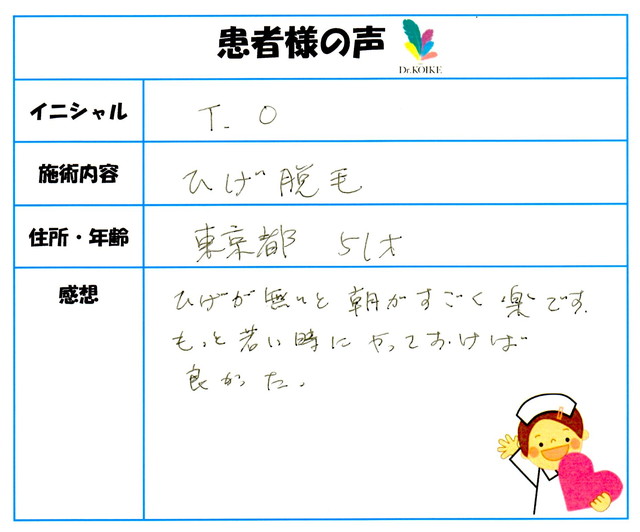 患者様の声
Dr.KOIKE
イニシャル T. O
施術内容 ひげ脱毛
住所・年齢 東京都 51才
感想 ひげが無いと朝がすごく楽です。
もっと若い時にやっておけば
良かった。